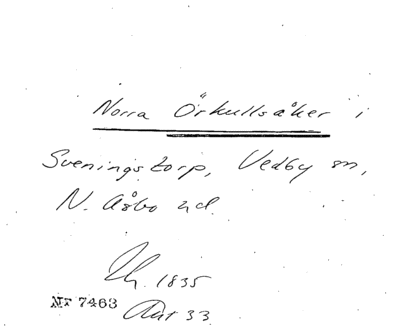 Norra Örkullsåker i
Sveningstorp, Vedby sn,
N. Åsbo hd
Th. 1835
Nr 7463 Akt 33